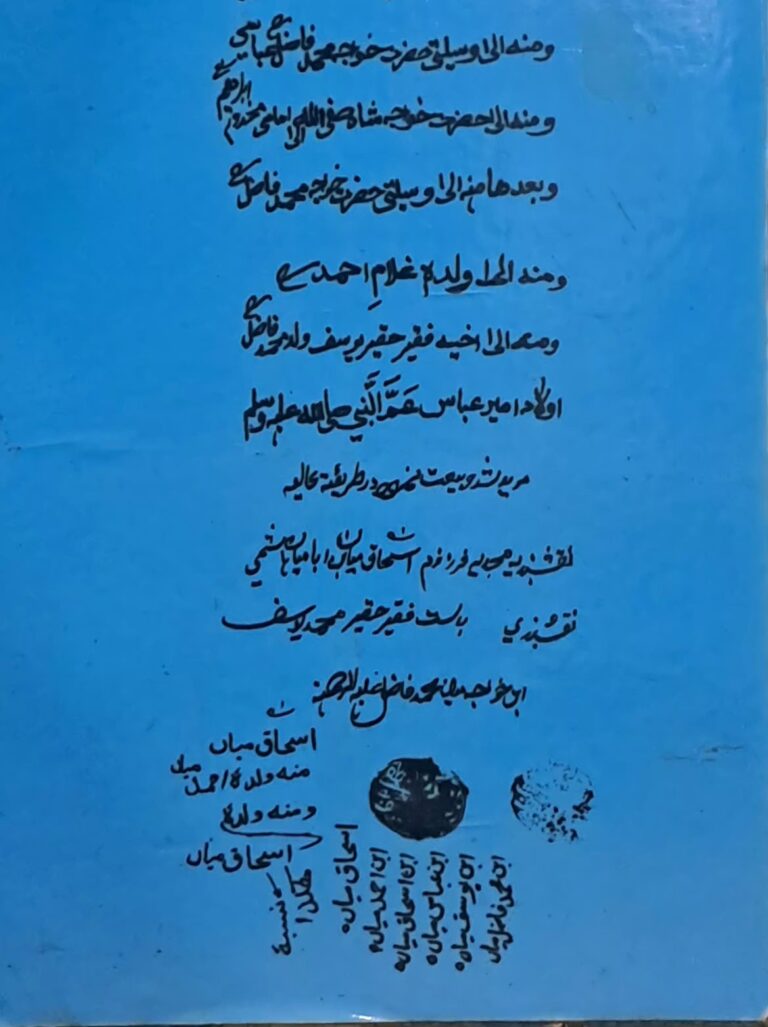 ومنه الی وسیلتی حضرت خوجه محمد فاضل عباسی
ومنه الی حضرت خوجه شاه صفی الله
ابراهیم
وبعدها منه الی وسیلتی حضرت خوجه محمد فاضل
ومنه الی ولده غلامِ احمدی
ومنه الی اخیه فقیر حقیر یوسف ولد محمد فاضل
اولاد امیر عباس عَمَّ النَّبي صلی الله علیه وسلم
مرید شد و بیعت نمود در طریقهٔ عالیه
نقشبندیه فرزندم اسحاق میاں هاشمي
نقشبندي بدست فقیر حقیر محمد یوسف
ابن خواجه محمد فاضل
اسحاق میاں
منه ولدهٔ احمد میاں
ومنه ولدهٔ
اسحاق میاں
هكذا نسبة
اسحاق میاں
ابن احمد میاں
ابن اسحاق میاں
ابن عباس میاں
ابن یوسف میاں
ابن محمد فاضل میاں